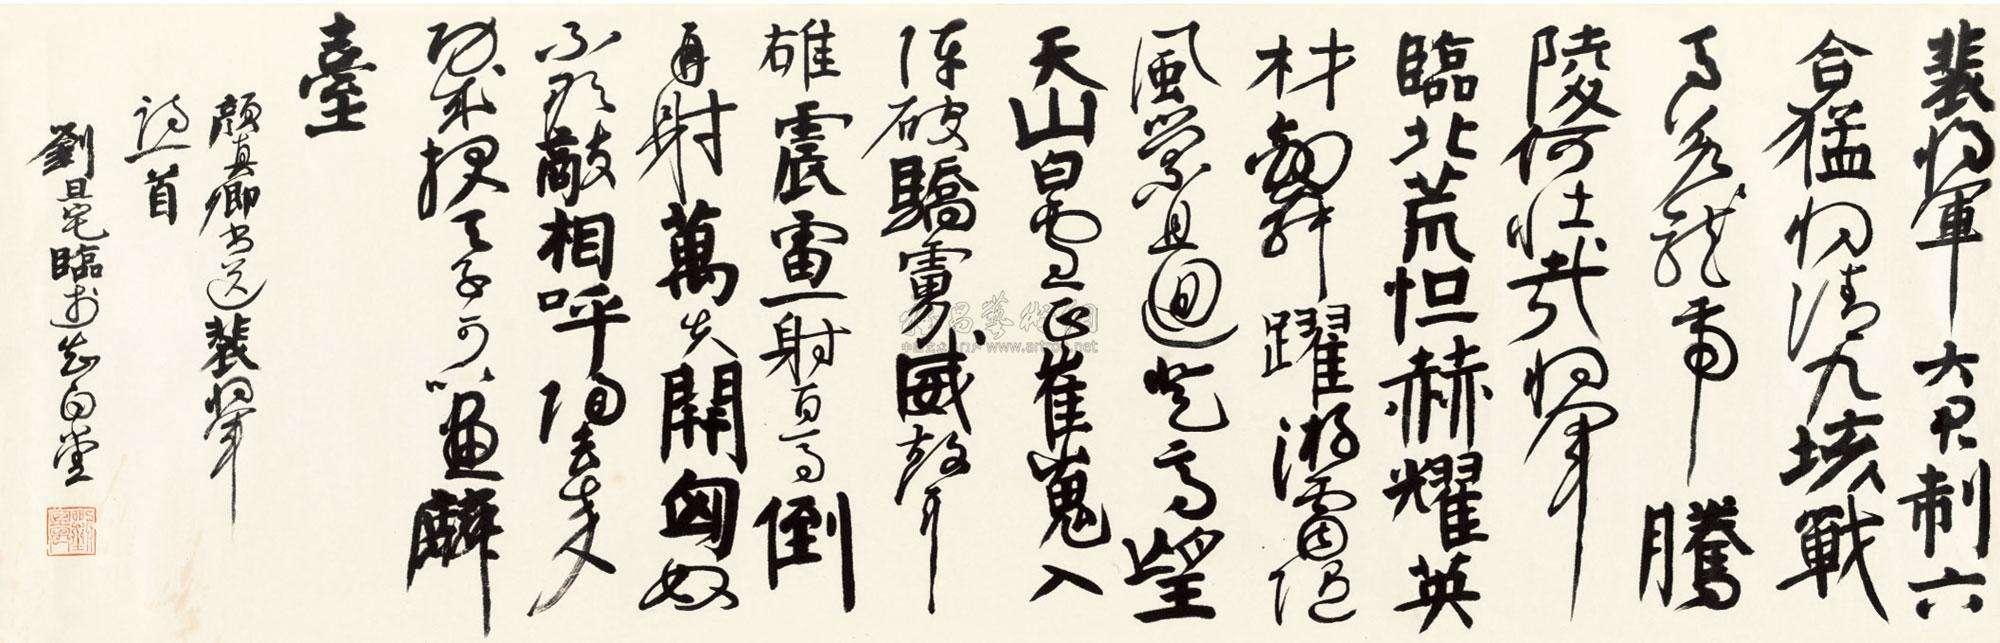 裴将軍大君制六
合猛将清九垓戰
馬若龍虎騰
陵何壮哉将軍
臨北荒怛赫耀英
材劍舞躍游雷隨
風縈且迴登高望
天山白雲正崔嵬入
陣破驕虜威聲
雄震雷一射百馬倒
再射萬夫開匈奴
不敢敵相呼歸去來
功成報天子可以畫麟
臺
顏真卿書送裴将軍
詩一首
劉旦宅臨於知白堂
雅昌藝術網
www.artron.net